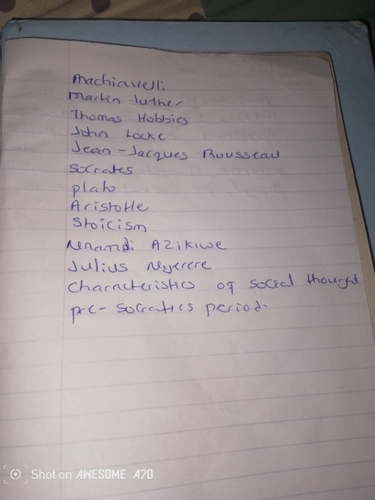 Machiavelli
Martin luther
Thomas Hobbies
John Locke
Jean-Jacques Rousseau
Socrates
plato
Aristotle
Stoicism
Nnamdi Azikiwe
Julius Nyerere
Characteristics of social thought
pre-socratics period.
Shot on AWESOME A70